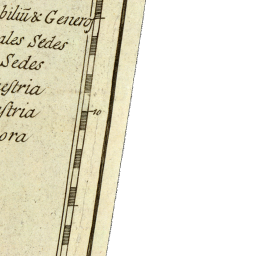 biliū & Generoſ
ales Sedes
Sedes
eſtria
ſtria
ora
10